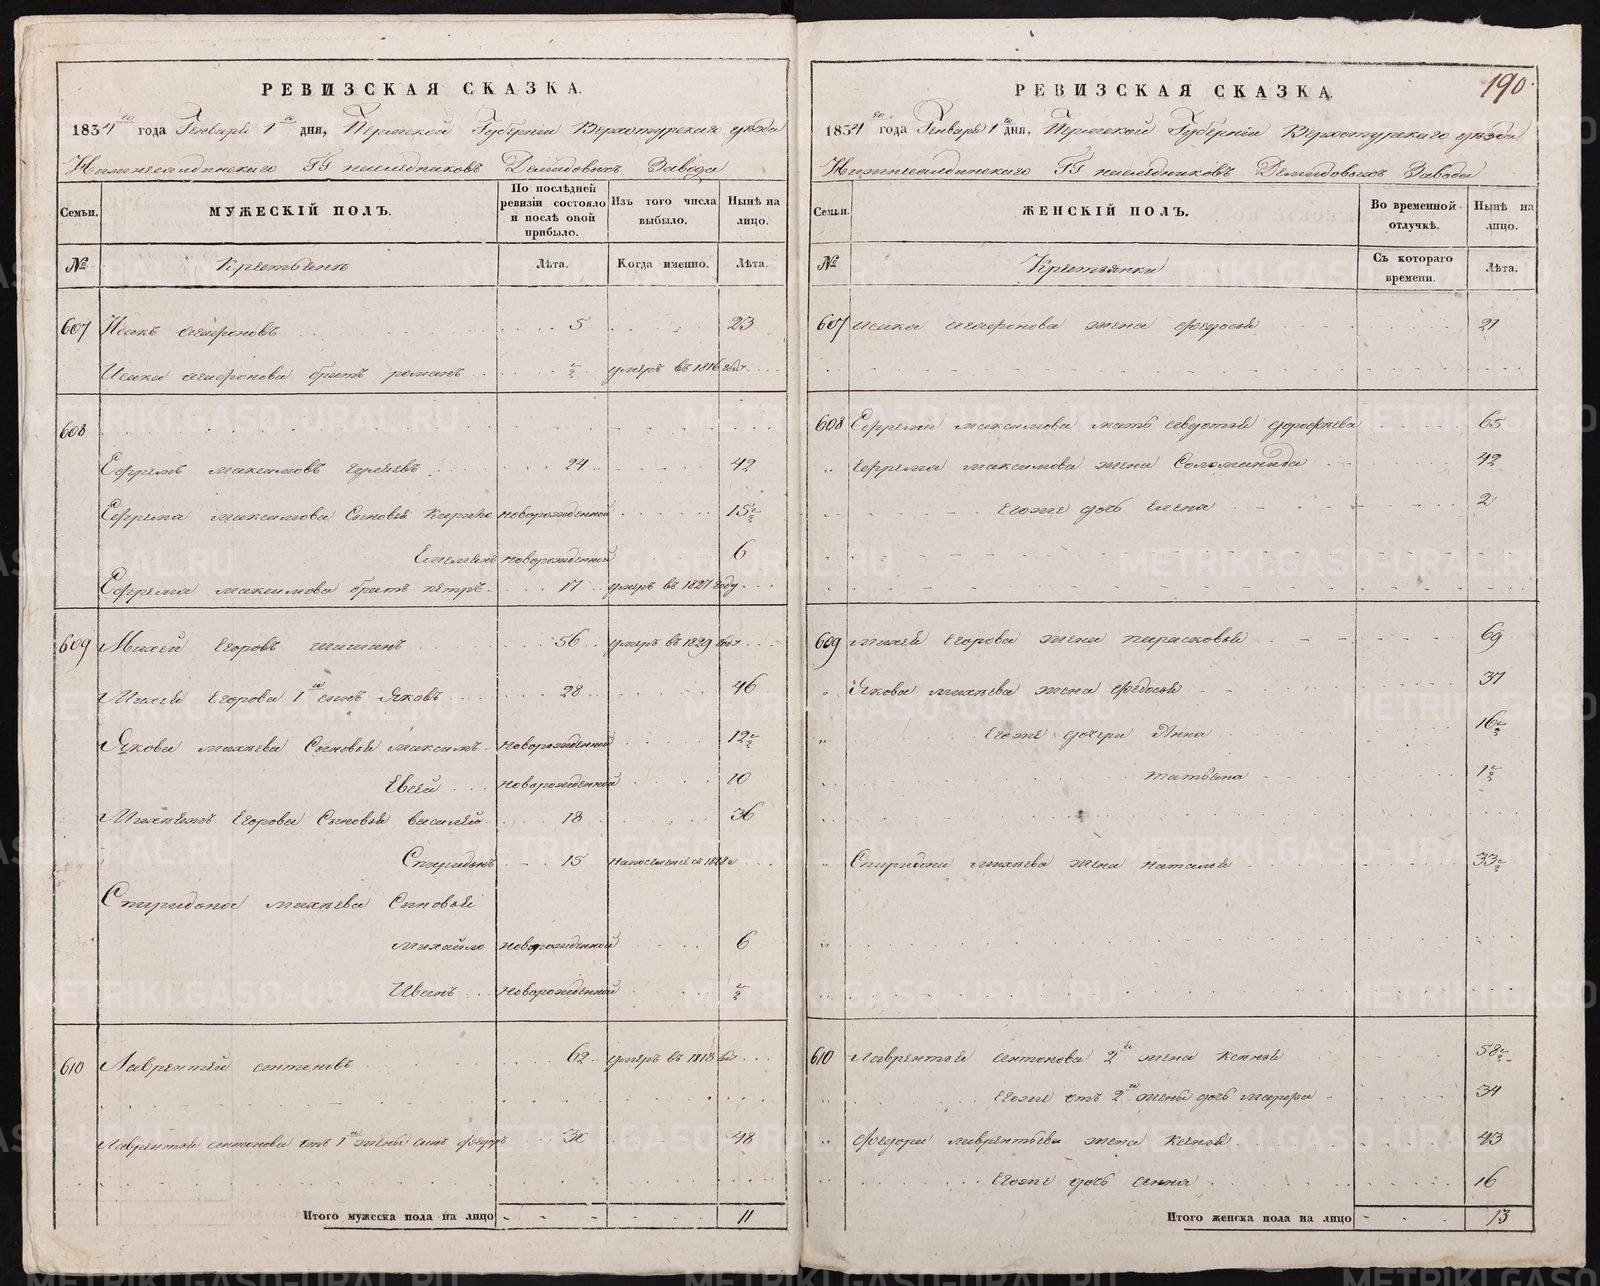 РЕВИЗСКАЯ СКАЗКА.
1834го года Генваря 1го дня, Пермской Губернии Верхотурскаго уѣзда
Нижнесалдинскаго ГГ наслѣдниковъ Демидовыхъ Завода
Семьи.
МУЖЕСКІЙ ПОЛЪ.
По послѣдней ревизіи состояло и послѣ оной прибыло.
Изъ того числа выбыло.
Нынѣ на лицо.
№
Крестьянъ
Лѣта.
Когда именно.
Лѣта.
607 Исакъ 5 23
Исака братъ романъ ½ умеръ въ 1816 году
608
Ефремъ максимовъ 24 42
Ефрема максимова Сыновья новорожденной 15½
Емельянъ новорожденной 6
Ефрема максимова братъ петръ 17 умеръ въ 1827 году
609 Михей Егоровъ шишинъ 56 умеръ въ 1829 году
Михея Егорова 1й сынъ Яковъ 28 46
Якова михѣева Сыновья максимъ новорожденной 12½
Евсей новорожденной 10
Егорова Сыновья василей 18 36
Спиридонъ 15
Спиридона михѣева Сыновья
михайло новорожденной 6
Иванъ новорожденной ½
610 Лаврентей антоновъ 62 умеръ въ 1818 году
Лаврентья антонова отъ 1й жены сынъ федоръ 30 48
Итого мужеска пола на лицо 11
190.
РЕВИЗСКАЯ СКАЗКА.
1834го года Генваря 1го дня, Пермской Губерніи Верхотурскаго уѣзда
Нижнесалдинскаго ГГ наслѣдниковъ Демидовыхъ Завода
Семьи.
ЖЕНСКІЙ ПОЛЪ.
Во временной отлучкѣ.
Нынѣ на лицо.
№
Крестьянки
Съ котораго времени.
Лѣта.
607 исака жена федосья 21
608 Ефрема максимова мать авдотья дорофеева 65
" Ефрема максимова жена Соломанида 42
Егоже дочь Елена 2
609 михея Егорова жена парасковья 69
" Якова михѣева жена федосья 37
" Егоже дочери Анна 16½
" татьяна 1½
" Спиридона михѣева жена наталья 33½
610 лаврентья антонова 2я жена Ксенья 58½
" Егоже отъ 2й жены дочь марфа 34
" федора лаврентьева жена Ксенья 43
Егоже дочь анна 16
Итого женска пола на лицо 13
METRIKI.GASO-URAL.RU